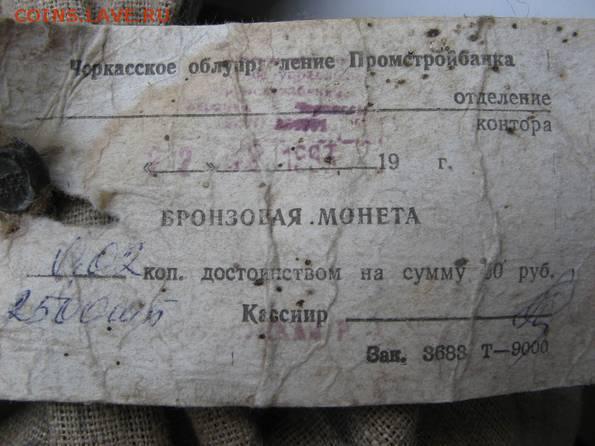 COINS.LAVE.RU
Черкасское облуправление Промстройбанка
отделение
контора
19 г.
БРОНЗОВАЯ МОНЕТА
0.02 коп. достоинством на сумму 50 руб.
2500 шт Кассир
Зак. 3683 Т—9000